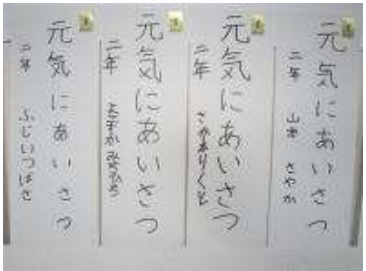 元気にあいさつ
二年 山本 さやか
元気にあいさつ
二年 さかもりくと
元気にあいさつ
二年
元気にあいさつ
二年 ふじいつばさ